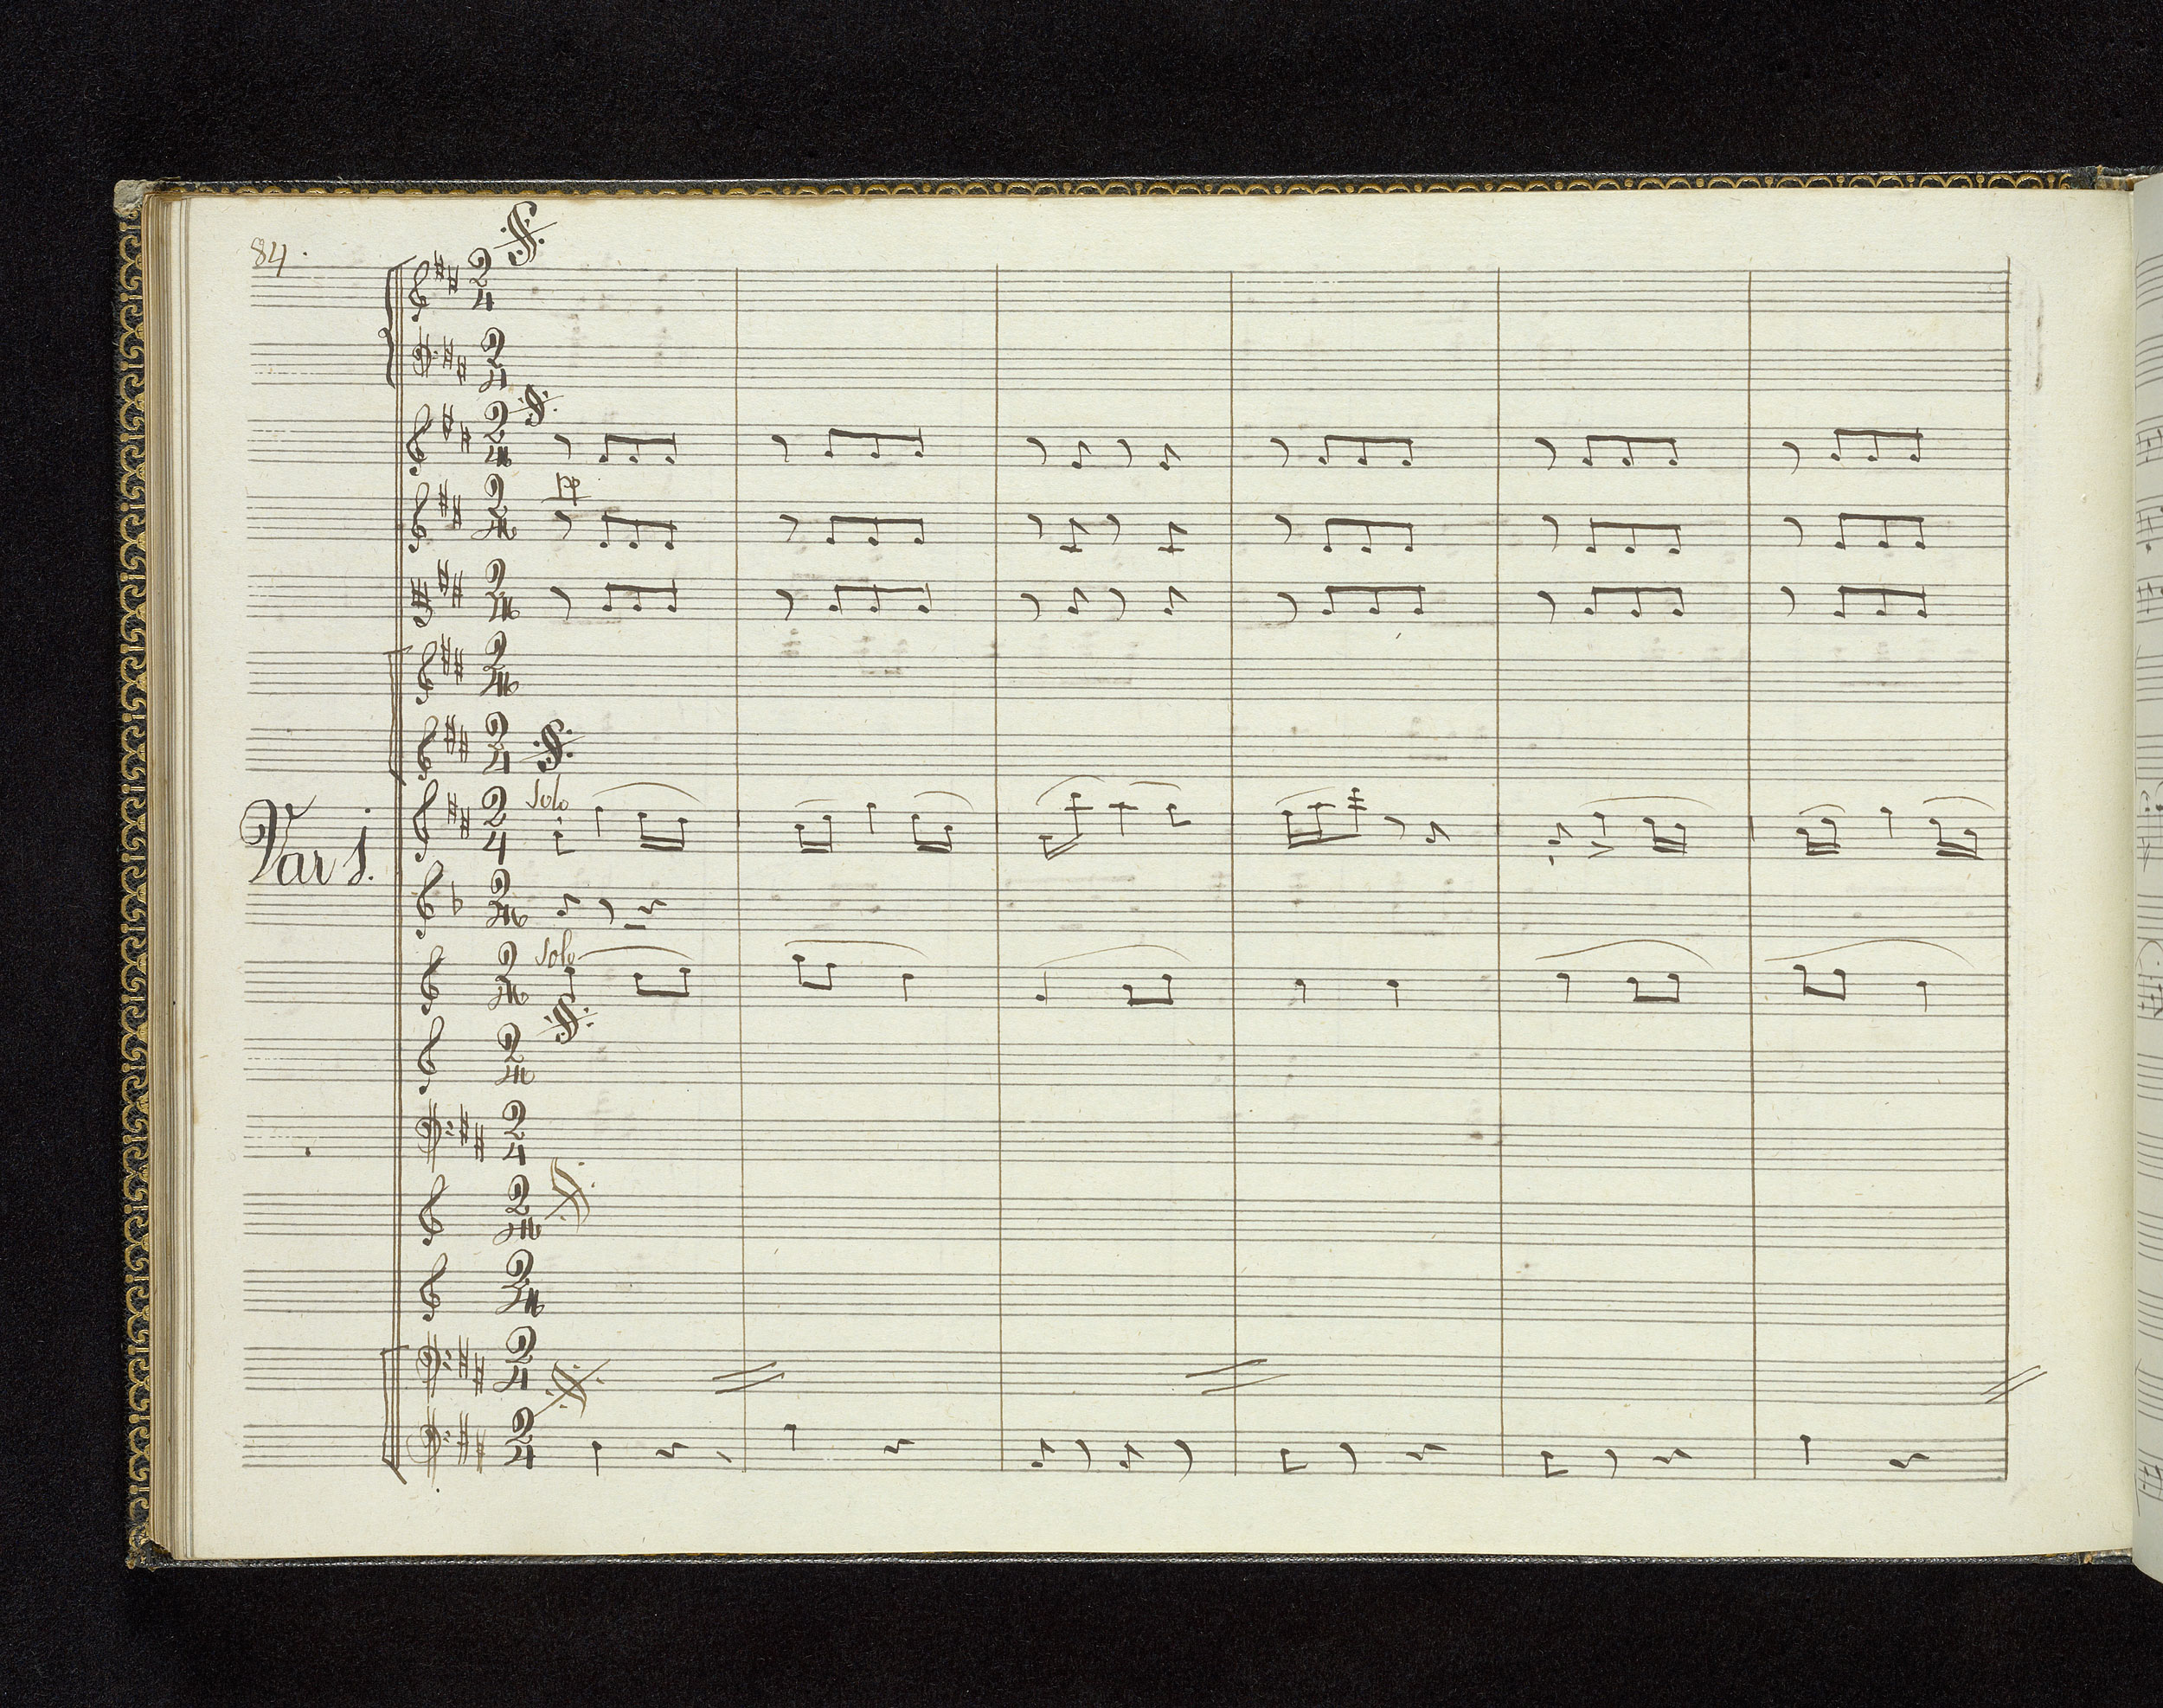 84.
pp
Solo
Var 1.
Solo